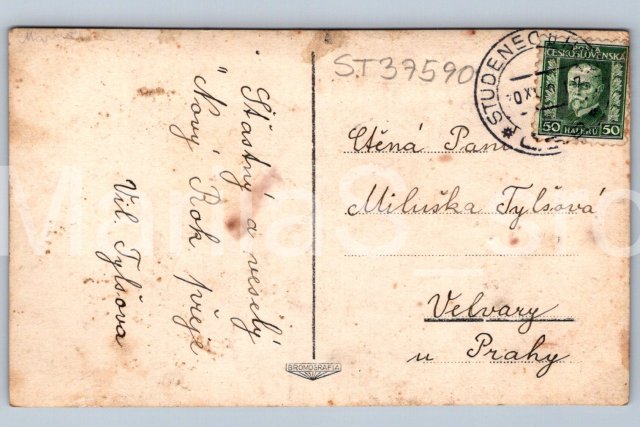 ST37590
STUDENEC
POŠTA
ČESKOSLOVENSKÁ
50 HALÉŘŮ 50
Šťastný a veselý
"Nový Rok přeje
Vil. Tylšova
Ctěná Paní
Miluška Tylšová
Velvary
u Prahy
BROMOGRAFIA